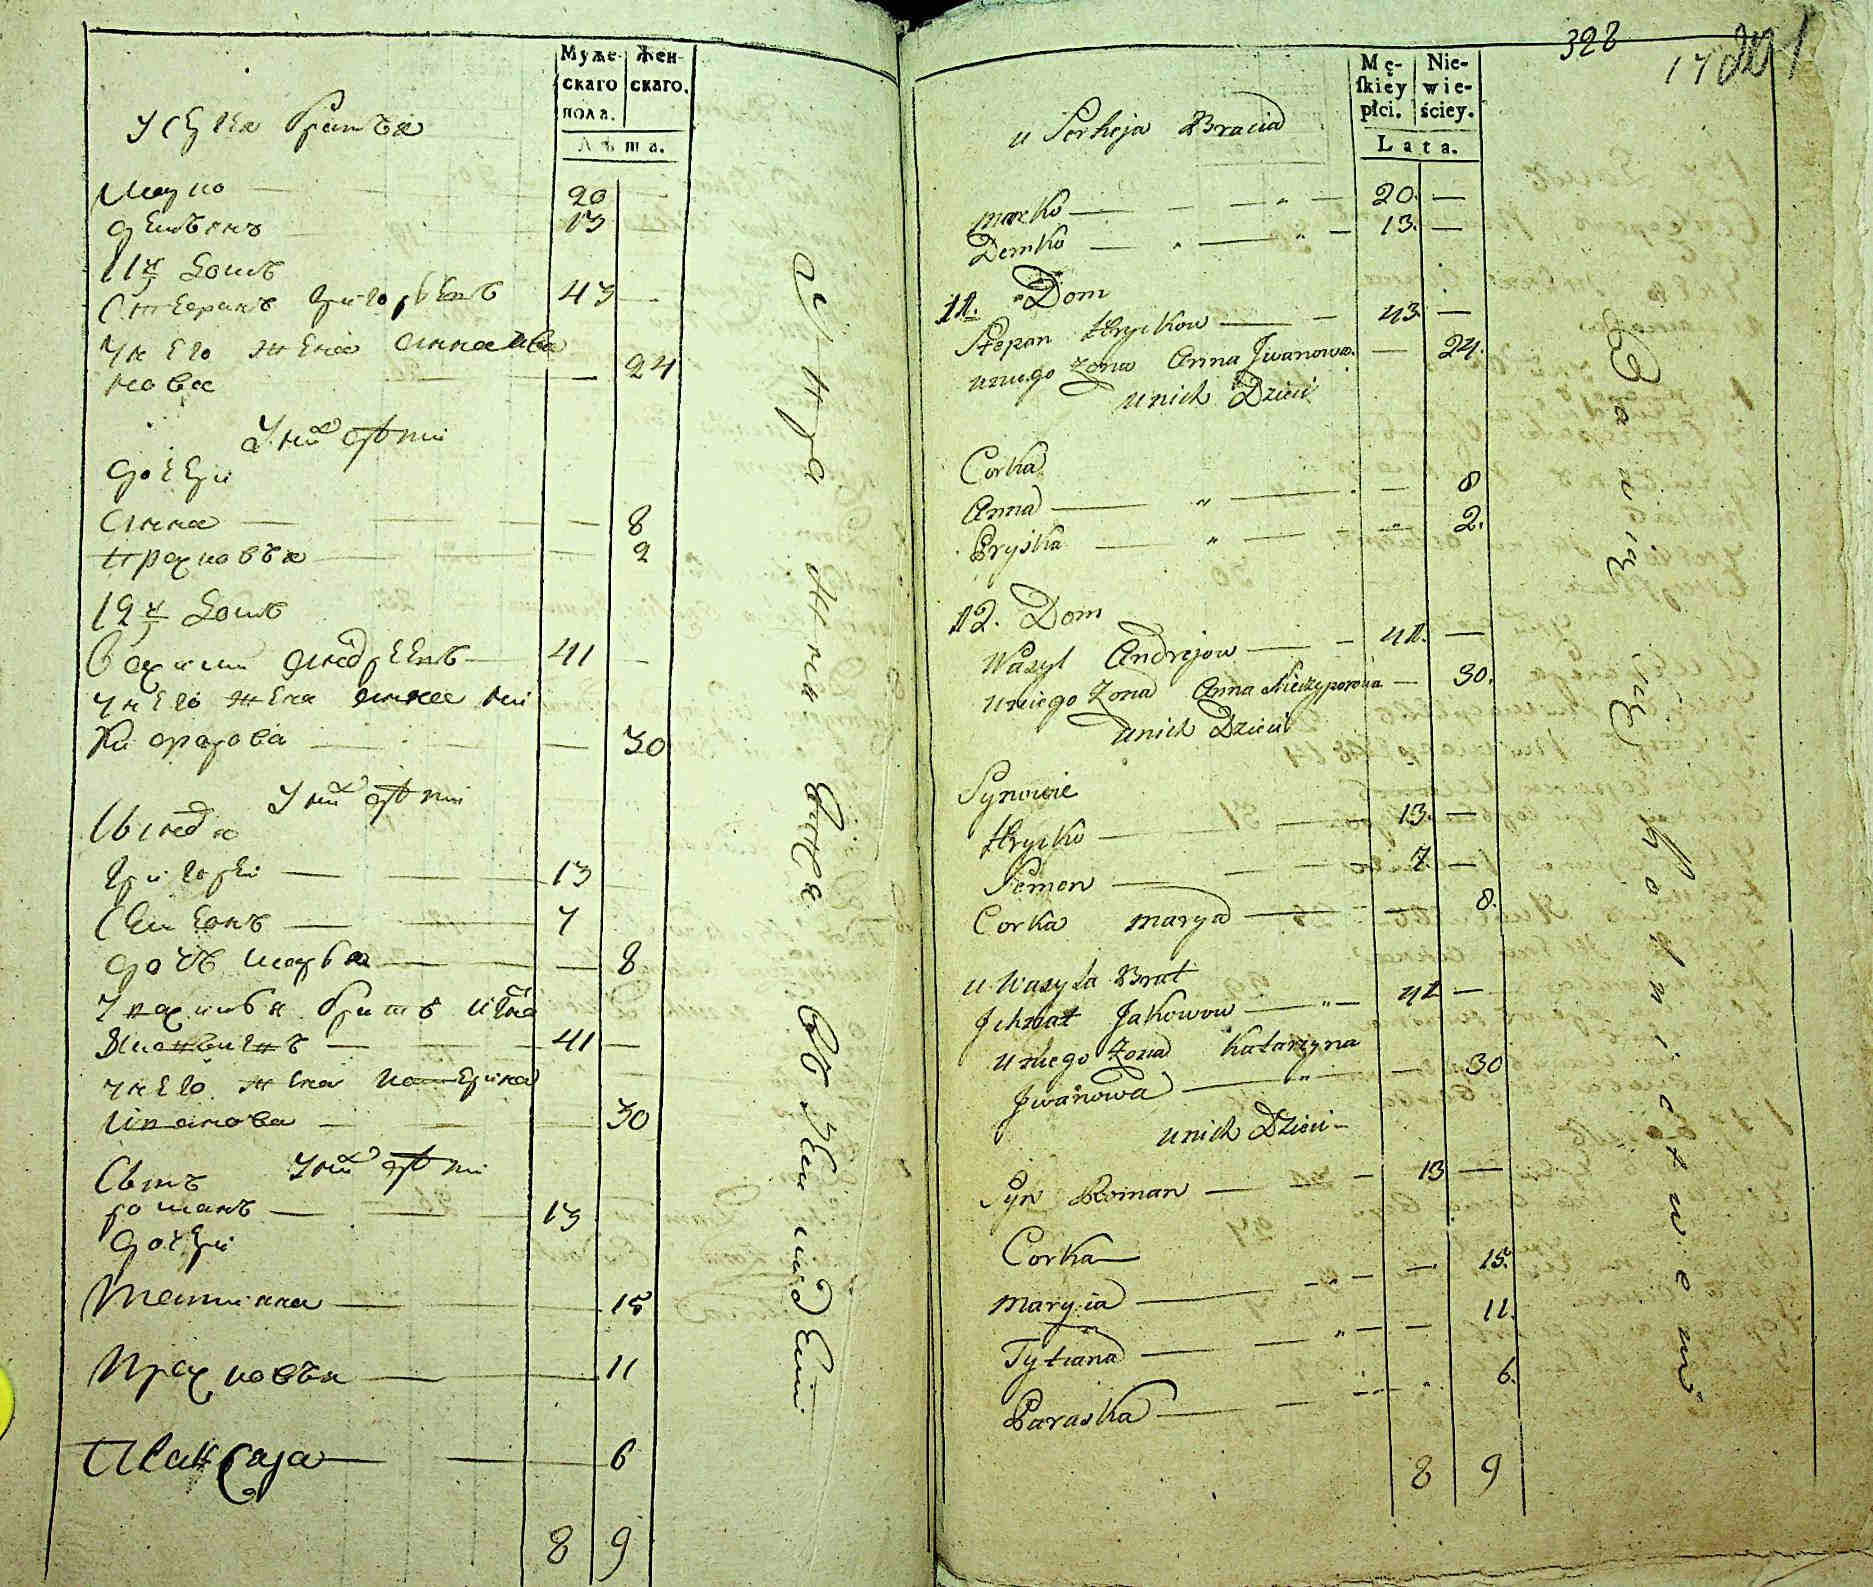 Муже-
скаго
пола.
Жен-
скаго.
Лѣта.
У Сергея братья
Марко — 20 —
Демьянъ — 13
11й Домъ
Степанъ Григорьевъ 43 —
у него жена Анна Ива
нова — 24
У них дѣти
дочери
Анна — 8
Прасковья — 2
12й Домъ
Василий Андреевъ — 41 —
у него жена Анна Ни
кифорова — 30
У них дѣти
Сыновя
Григорей — 13
Семенъ — 7
дочь Марья — 8
У Василья братъ
41 —
у него жена Катерина
Иванова — 30
У них дѣти
Сынъ
романъ — 13
дочери
Татияна — 15
Прасковья — 11
6
8 9
328
Mę-
ſkiey
płci.
Nie-
wie-
ściey.
Lata.
u Serheja Bracia
Marko — 20. —
Demko — 13. —
11. Dom
Stepan Hryckow — 43. —
u niego Zona Anna Jwanowa. — 24.
u nich Dzieci
Corka
Anna — 8
Pryśka — 2.
12. Dom
Wasyl Andrejow — 41. —
u niego Zona Anna Nieczyporowa — 30.
u nich Dzieci
Synowie
Hryćko — 13. —
Semen — 7. —
Corka Marya — 8.
u Wasyla Brat
Jakowow — 41 —
u niego Zona Katarzyna
Jwanowa — 30
u nich Dzieci —
Syn Roman — 13 —
Corka — 15.
Maryia — 11.
Tytiana — 6.
Paraska —
8 9